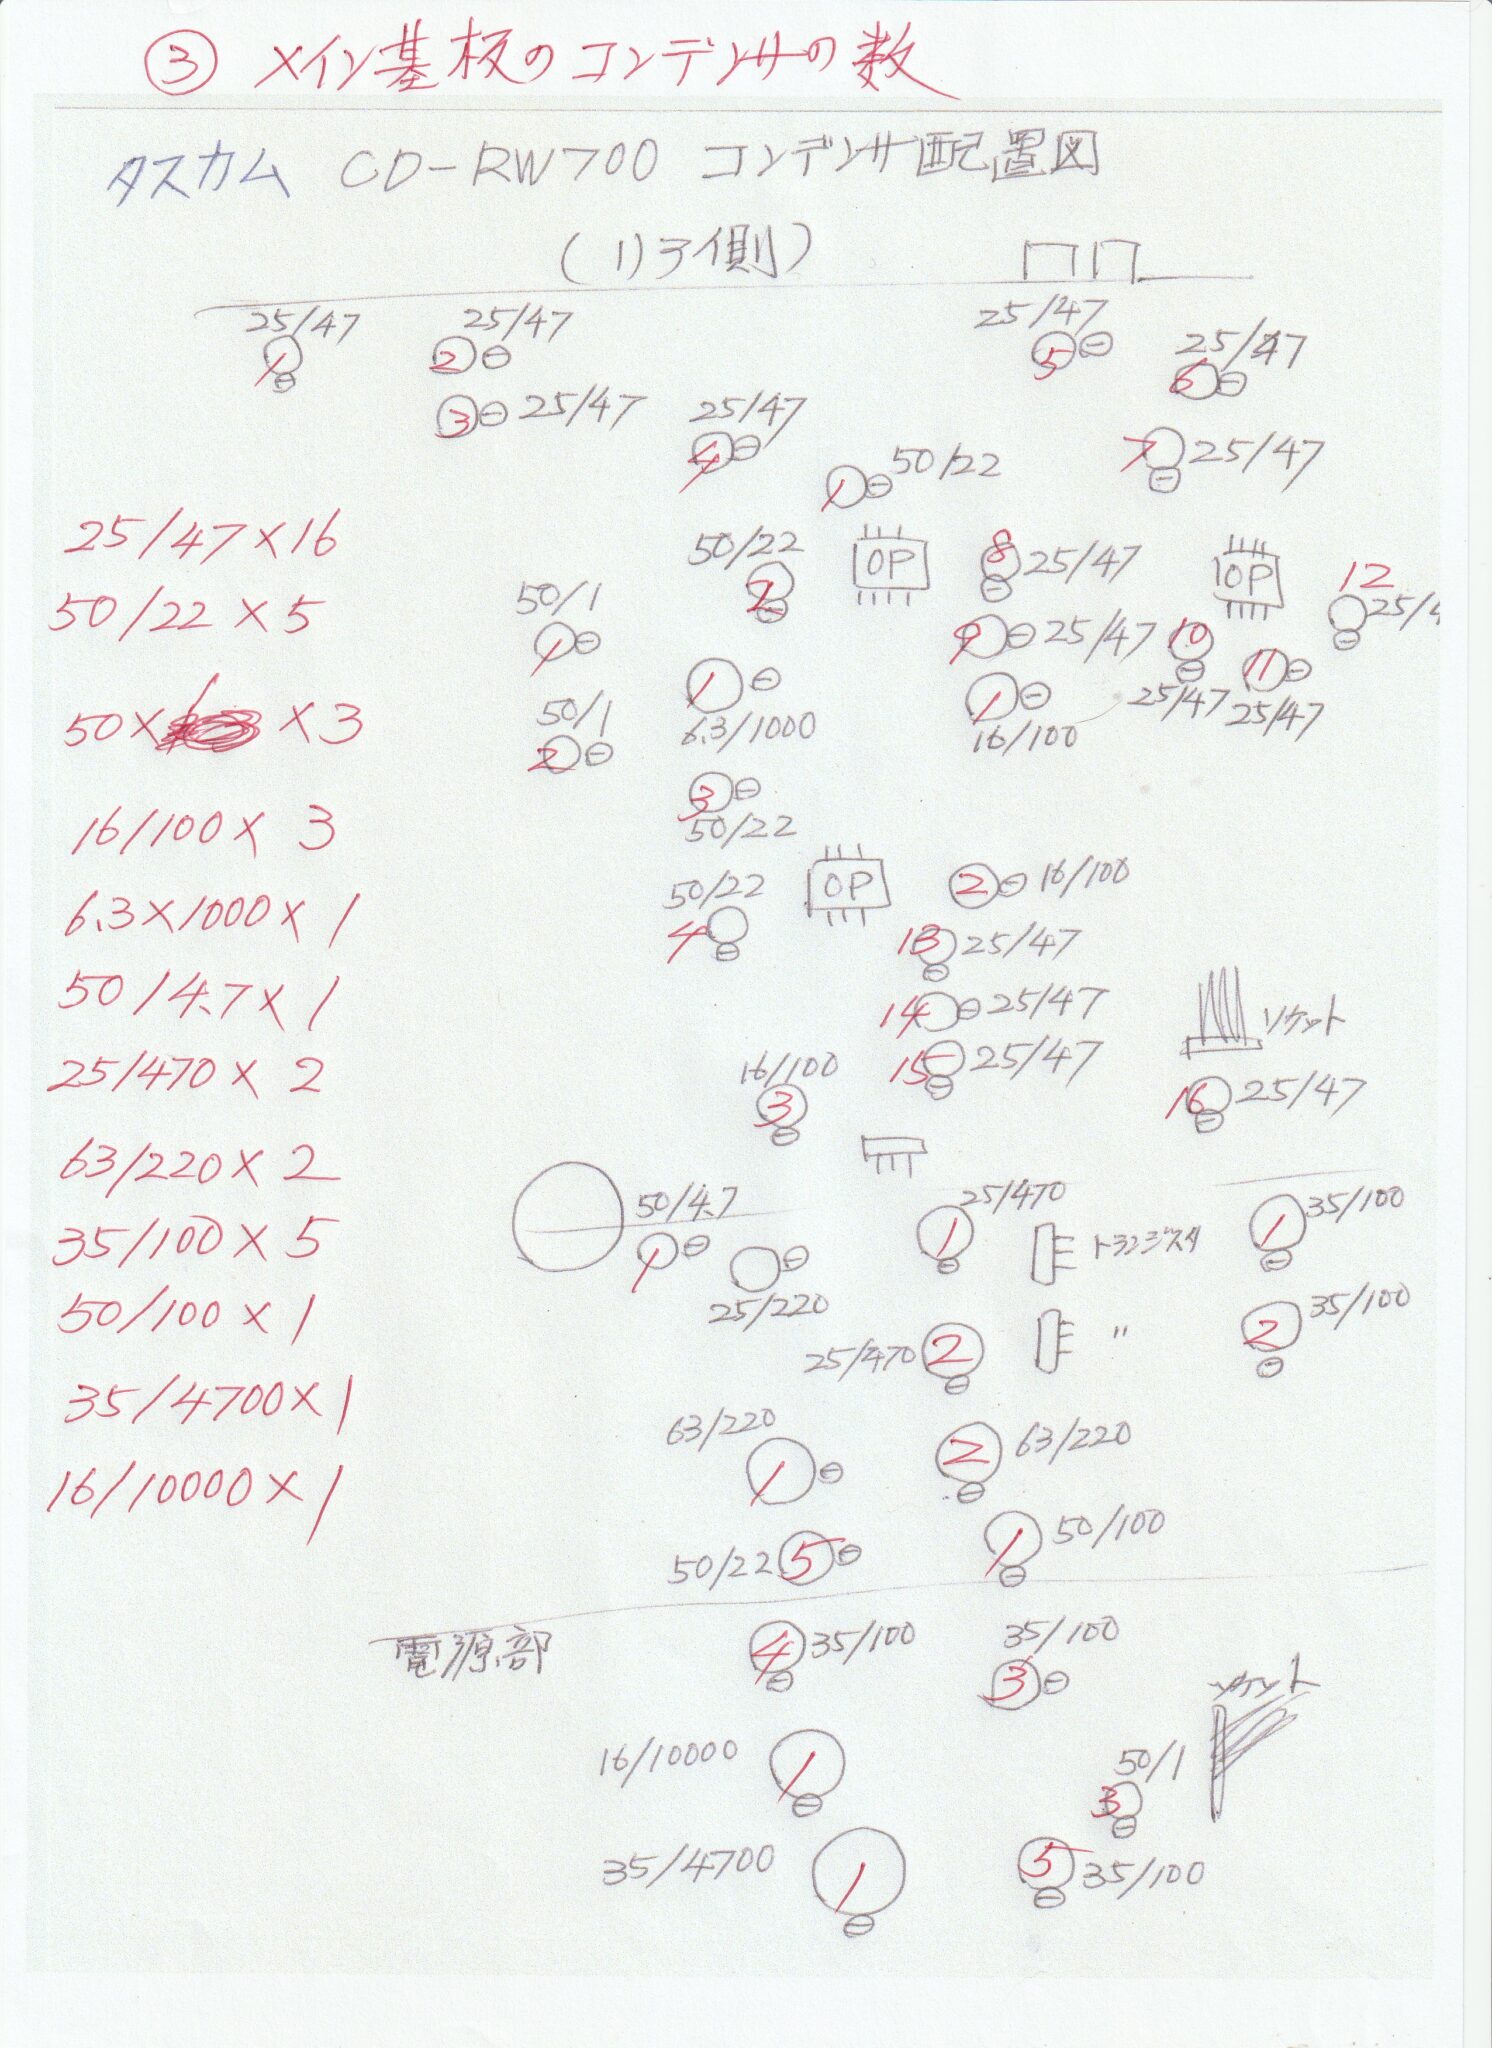 ③ メイン基板のコンデンサの数
タスカム CD-RW700 コンデンサ配置図
(リヤ側)
25/47 25/47 25/47
1 2 5 25/47
6
3 25/47 25/47
4 7 25/47
1 50/22
25/47×16
50/22 OP 8 25/47 OP 12
50/1 2 25/4
50/22×5
1 9 25/47 10 11
1 1 25/47 25/47
50/1 6.3/1000 16/100
50×1×3
2
3
50/22
16/100×3
50/22 OP 2 16/100
4
6.3×1000×1
13 25/47
50/4.7×1
14 25/47 ソケット
15 25/47
25/470×2
16/100 16 25/47
3
63/220×2
50/4.7 25/470 35/100
1 1 トランジスタ 1
35/100×5
25/220
50/100×1
25/470 2 〃 2 35/100
35/4700×1
63/220 2 63/220
1
16/10000×1
50/22 5 1 50/100
電源部 4 35/100 35/100
3 ソケット
16/10000 1 50/1
3
35/4700 1 5 35/100